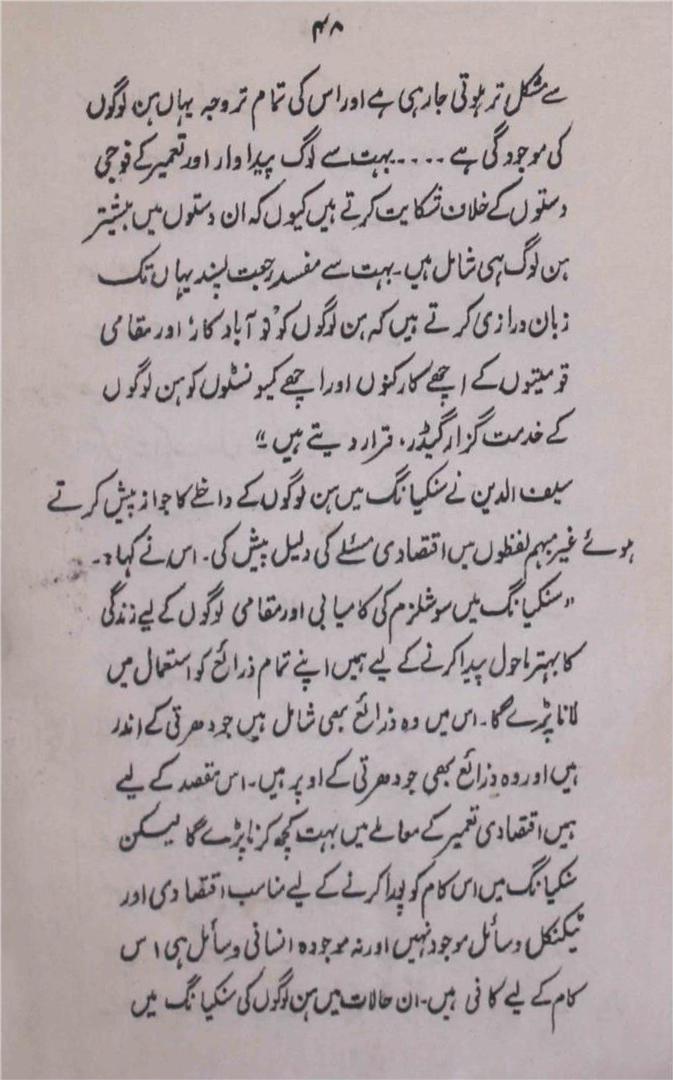 ۴۸
سے مشکل تر ہوتی جا رہی ہے اور اس کی تمام تر وجہ یہاں ہن لوگوں
کی موجودگی ہے .... بہت سے لوگ پیداوار اور تعمیر کے فوجی
دستوں کے خلاف شکایت کرتے ہیں کیوں کہ ان دستوں میں بیشتر
ہن لوگ ہی شامل ہیں۔ بہت سے مفسد رجعت پسند یہاں تک
زبان درازی کرتے ہیں کہ ہن لوگوں کو 'نو آباد کار' اور مقامی
قومیتوں کے اچھے کارکنوں اور اچھے کمیونسٹوں کو ہن لوگوں
کے خدمت گزار گیڈر، قرار دیتے ہیں۔"
سیف الدین نے سنکیانگ میں ہن لوگوں کے داخلے کا جواز پیش کرتے
ہوئے غیر مبہم لفظوں میں اقتصادی مسئلے کی دلیل پیش کی۔ اس نے کہا:۔
"سنکیانگ میں سوشلزم کی کامیابی اور مقامی لوگوں کے لیے زندگی
کا بہتر ماحول پیدا کرنے کے لیے ہمیں اپنے تمام ذرائع کو استعمال میں
لانا پڑے گا۔ اس میں وہ ذرائع بھی شامل ہیں جو دھرتی کے اندر
ہیں اور وہ ذرائع بھی جو دھرتی کے اوپر ہیں۔ اس مقصد کے لیے
ہمیں اقتصادی تعمیر کے معاملے میں بہت کچھ کرنا پڑے گا لیکن
سنکیانگ میں اس کام کو پورا کرنے کے لیے مناسب اقتصادی اور
ٹیکنکل وسائل موجود نہیں اور نہ موجودہ انسانی وسائل ہی اس
کام کے لیے کافی ہیں۔ ان حالات میں ہن لوگوں کی سنکیانگ میں